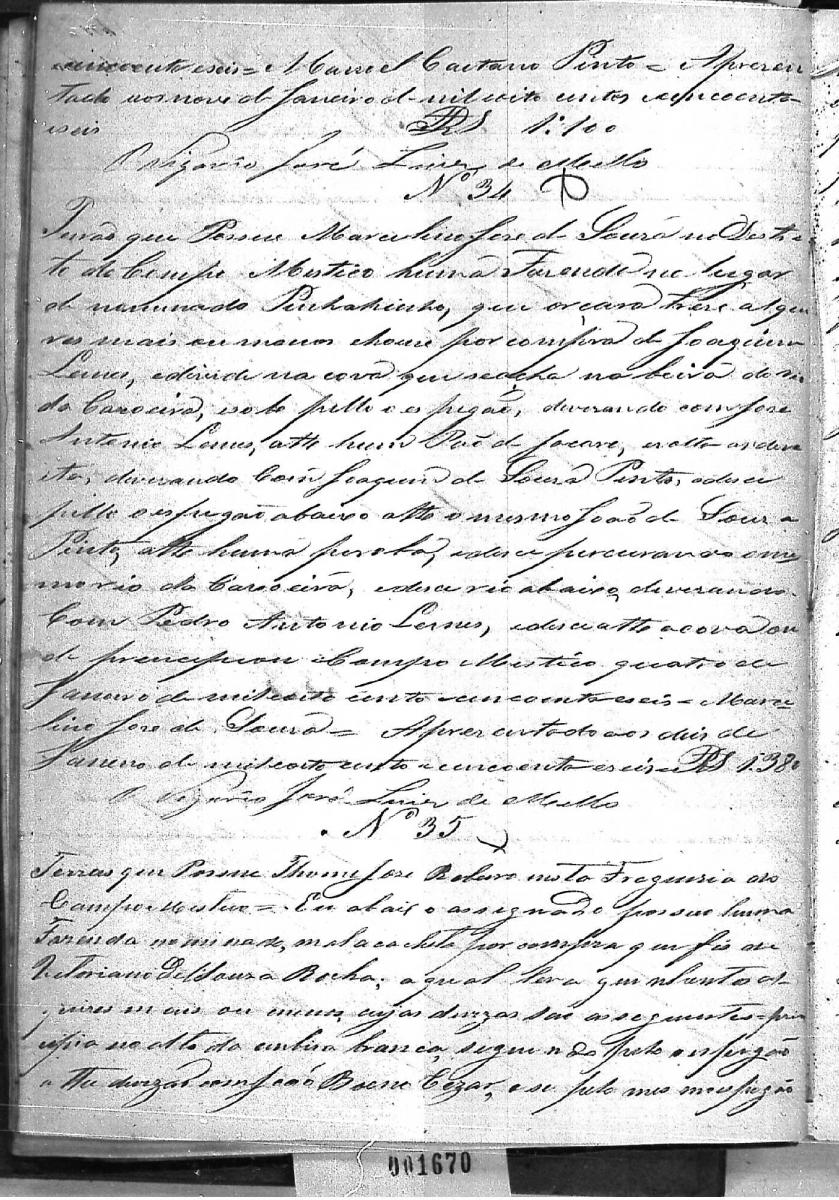 cincoenta eseis = Manoel Caetano Pinto = Apresen
tado aos nove de Janeiro de mil oito centos ecincoenta
eseis RS 1:100
O Vigario José Luiz de Mello
Nº 34
que Possue Marcelino Jose de Souza no Destri
to do Campo Mistico huma Fazenda no lugar
de nominado Pinhalzinho, que orcara treze alquei
res mais ou menos houve por compra de Joaquim
Lemes, edivide na cova que seacha na beira do rio
da Caxoeira, esobe pello o espigaõ, devezando com Jose
Antonio Lemes, athe hum Paó de Jocare, evolta adire
ita, devezando Com Joaquim de Souza Pinto, edesce
pello o espigaõ abaixo athe o mesmo Joaõ de Souza
Pinto, athe huma peroba, edesce percurando o mes
mo rio da Caxoeira, edesce rio abaixo, devezando
Com Pedro Antonio Lemes, edesce athe acova on
de prencipiou Campo Mistico quatro de
Janeiro de mil oito cento ecincoenta eseis = Marce
lino Jose de Souza = Aprezentado aos deis de
Janeiro de mil oito cento e cincoenta eseis RS 1:380
O Vigario José Luiz de Mello
Nº 35
Terras que Possue Thome Jose nesta Freguezia do
Campo Mistico = Eu abaixo assignado possuo huma
Fazenda nominada, malacacheta por compra que fis de
Vetoriano de Souza Rocha, a qual tera quinhentos al
queires mais ou menos, cujas divizas saõ as seguentes = pri
cipia no alto da branca, seguindo pelo o espigaõ
athe divizar com Joaõ Bueno Cezar, e se pelo mesmo espigaõ
001670